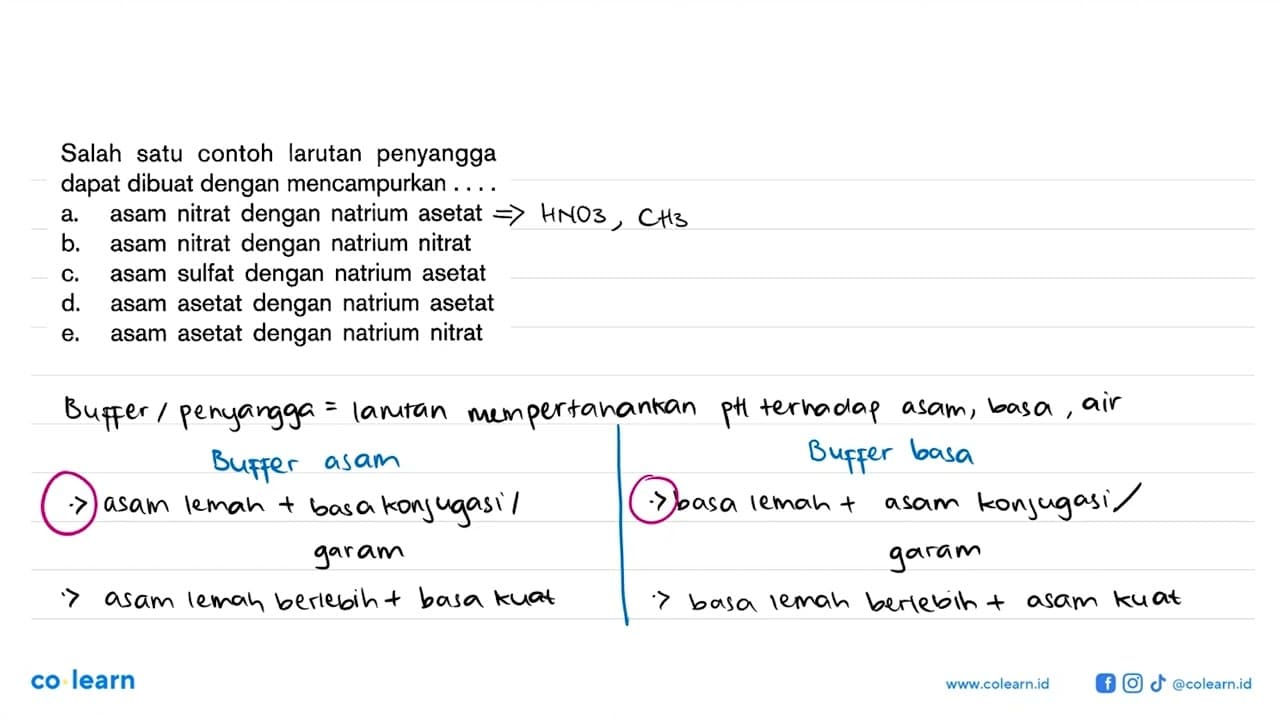 Salah satu contoh larutan penyangga
dapat dibuat dengan mencampurkan . . . .
a. asam nitrat dengan natrium asetat => HNO3, CH3
b. asam nitrat dengan natrium nitrat
c. asam sulfat dengan natrium asetat
d. asam asetat dengan natrium asetat
e. asam asetat dengan natrium nitrat
Buffer / penyangga = larutan mempertahankan pH terhadap asam, basa, air
Buffer asam
-> asam lemah + basa konjugasi /
garam
-> asam lemah berlebih + basa kuat
Buffer basa
-> basa lemah + asam konjugasi /
garam
-> basa lemah berlebih + asam kuat
co learn
www.colearn.id
@colearn.id